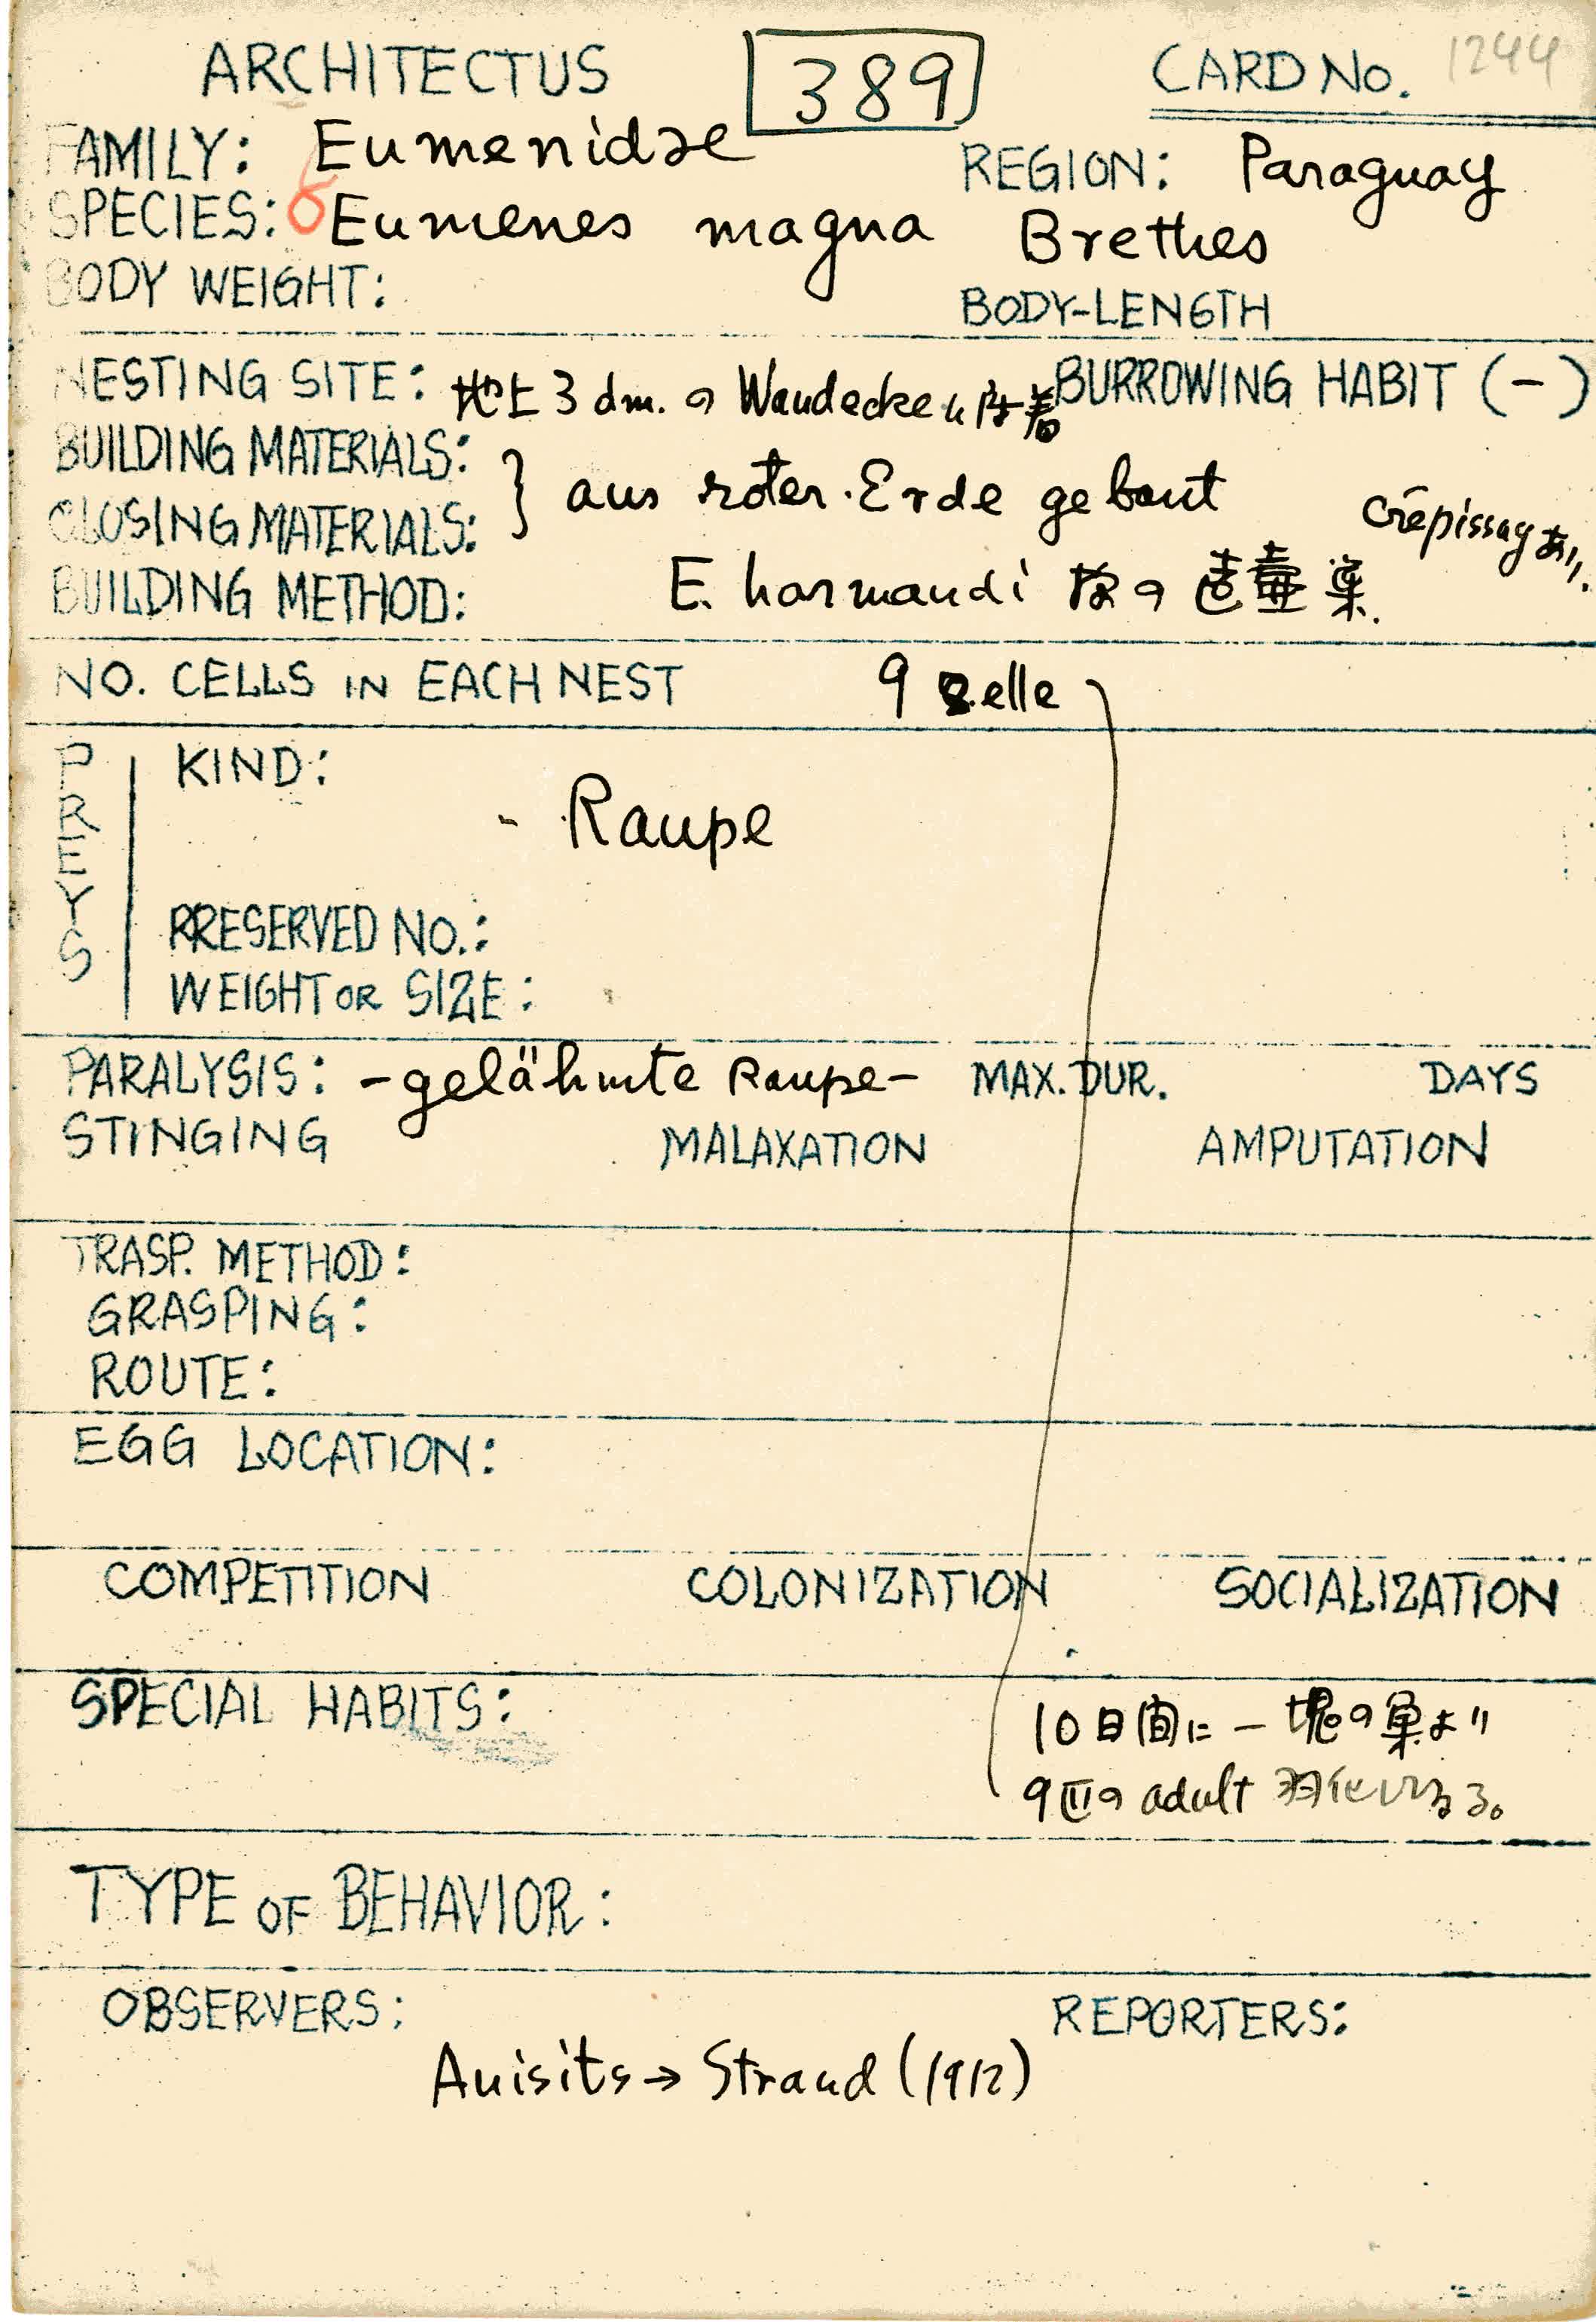 ARCHITECTUS 389 CARD No. 1244
FAMILY: Eumenidae REGION: Paraguay
SPECIES: Eumenes magna Brethes
BODY WEIGHT: BODY-LENGTH
NESTING SITE: 地上3dm.の Wandeckeに附着 BURROWING HABIT (-)
BUILDING MATERIALS:
CLOSING MATERIALS: } aus roter Erde gebaut crépissagあり.
BUILDING METHOD: E. harmandi 様の造壷巣.
NO. CELLS IN EACH NEST 9 Zelle
PREYS
KIND:
- Raupe
PRESERVED NO.:
WEIGHT OR SIZE:
PARALYSIS: -gelähmte Raupe- MAX. DUR. DAYS
STINGING MALAXATION AMPUTATION
TRASP. METHOD:
GRASPING:
ROUTE:
EGG LOCATION:
COMPETITION COLONIZATION SOCIALIZATION
SPECIAL HABITS: 10日間に一塊の巣より
9匹の adult 羽化
TYPE OF BEHAVIOR:
OBSERVERS: REPORTERS:
Anisits → Strand (1912)